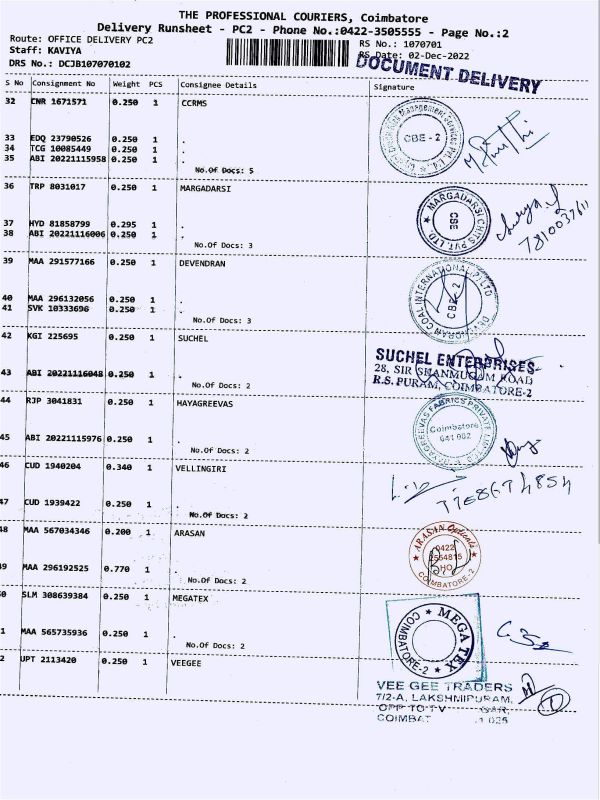 THE PROFESSIONAL COURIERS, Coimbatore
Delivery Runsheet - PC2 - Phone No.:0422-3505555 - Page No.:2
Route: OFFICE DELIVERY PC2
RS No.: 1070701
Staff: KAVIYA
RS Date: 02-Dec-2022
DRS No.: DCJB107070102
DOCUMENT DELIVERY
S No Consignment No Weight PCS Consignee Details Signature
32 CNR 1671571 0.250 1 CCRMS
CBE - 2
33 EDQ 23790526 0.250 1 .
34 TCG 10085449 0.250 1 .
35 ABI 20221115958 0.250 1 .
No.Of Docs: 5
36 TRP 8031017 0.250 1 MARGADARSI
MARGADARSI CHITS PVT. LTD.
CBE
7810037611
37 HYD 81858799 0.295 1 .
38 ABI 20221116006 0.250 1 .
No.Of Docs: 3
39 MAA 291577166 0.250 1 DEVENDRAN
DEVENDRAN COAL INTERNATIONAL (P) LTD
CBE - 2
40 MAA 296132056 0.250 1 .
41 SVK 10333696 0.250 1 .
No.Of Docs: 3
42 KGI 225695 0.250 1 SUCHEL
SUCHEL ENTERPRISES
28, SIR SHANMUGAM ROAD
R.S. PURAM, COIMBATORE-2
43 ABI 20221116048 0.250 1 .
No.Of Docs: 2
44 RJP 3041831 0.250 1 HAYAGREEVAS
HAYAGREEVAS FABRICS PRIVATE LIMITED
Coimbatore
641 002
45 ABI 20221115976 0.250 1 .
No.Of Docs: 2
46 CUD 1940204 0.340 1 VELLINGIRI
47 CUD 1939422 0.250 1 .
No.Of Docs: 2
48 MAA 567034346 0.200 1 ARASAN
ARASAN Opticals
0422
2554815
HO
COIMBATORE-2
49 MAA 296192525 0.770 1 .
No.Of Docs: 2
0 SLM 308639384 0.250 1 MEGATEX
MEGA TEX
COIMBATORE-2
1 MAA 565735936 0.250 1 .
No.Of Docs: 2
2 UPT 2113420 0.250 1 VEEGEE
VEE GEE TRADERS
7/2-A, LAKSHMIPURAM,
OPP TO TV
COIMBAT 025